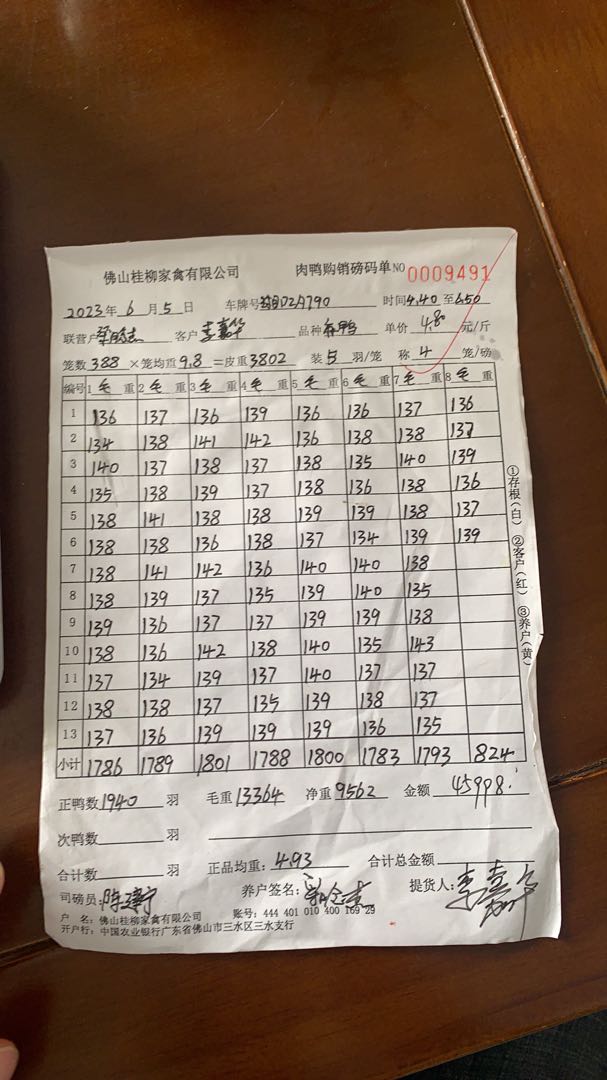 佛山桂柳家禽有限公司 肉鸭购销磅码单 NO 0009491
2023年 6 月 5 日 车牌号 D2A790 时间 4.40 至 6.50
联营户 客户 李嘉华 品种 单价 4.80 元/斤
笼数 388 ×笼均重 9.8 =皮重 3802 装 5 羽/笼 称 4 笼/磅
编号 1 毛 重 2 毛 重 3 毛 重 4 毛 重 5 毛 重 6 毛 重 7 毛 重 8 毛 重
1 136 137 136 139 136 136 137 136
2 134 138 141 142 136 138 138 137
3 140 137 138 137 138 135 140 139
4 135 138 139 137 138 136 138 136
5 138 141 138 138 139 139 138 137
6 138 138 136 138 137 134 139 139
7 138 141 142 136 140 140 138
8 138 139 137 135 139 140 135
9 139 136 137 137 139 139 138
10 138 136 142 138 140 135 143
11 137 134 139 137 140 137 137
12 138 138 137 135 139 138 137
13 137 136 139 139 139 136 135
小计 1786 1789 1801 1788 1800 1783 1793 824
正鸭数 1940 羽 毛重 13364 净重 9562 金额 45998.
次鸭数 羽
合计数 羽 正品均重: 4.93 合计总金额
司磅员: 养户签名: 提货人: 李嘉华
户 名: 佛山桂柳家禽有限公司 账号: 444 401 010 400 169 29
开户行: 中国农业银行广东省佛山市三水区三水支行
①存根(白) ②客户(红) ③养户(黄)